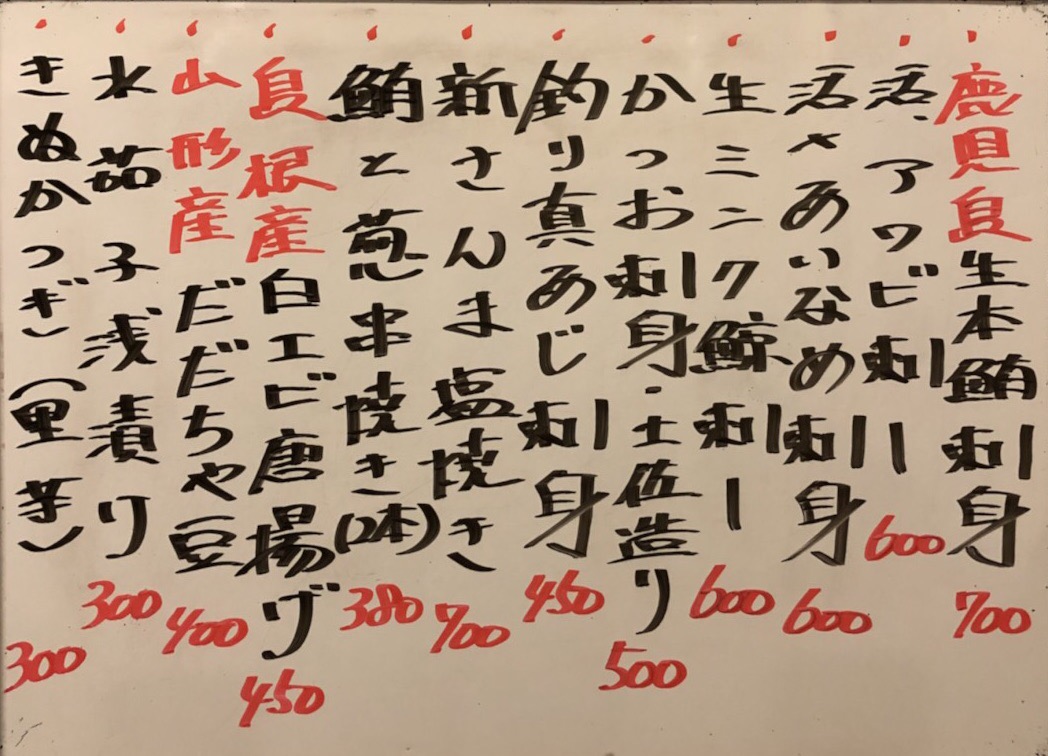 鹿児島生本鮪刺身 700
活、アワビ刺し 600
活〆あいなめ刺身 600
生ミンク鯨刺し 600
かつお刺身・土佐造り 500
釣り真あじ刺身 450
新さんま塩焼き 700
鮪と葱串焼き(2本) 380
島根産白エビ唐揚げ 450
山形産だだちゃ豆 400
水茄子浅漬り 300
きぬかつぎ(里芋) 300